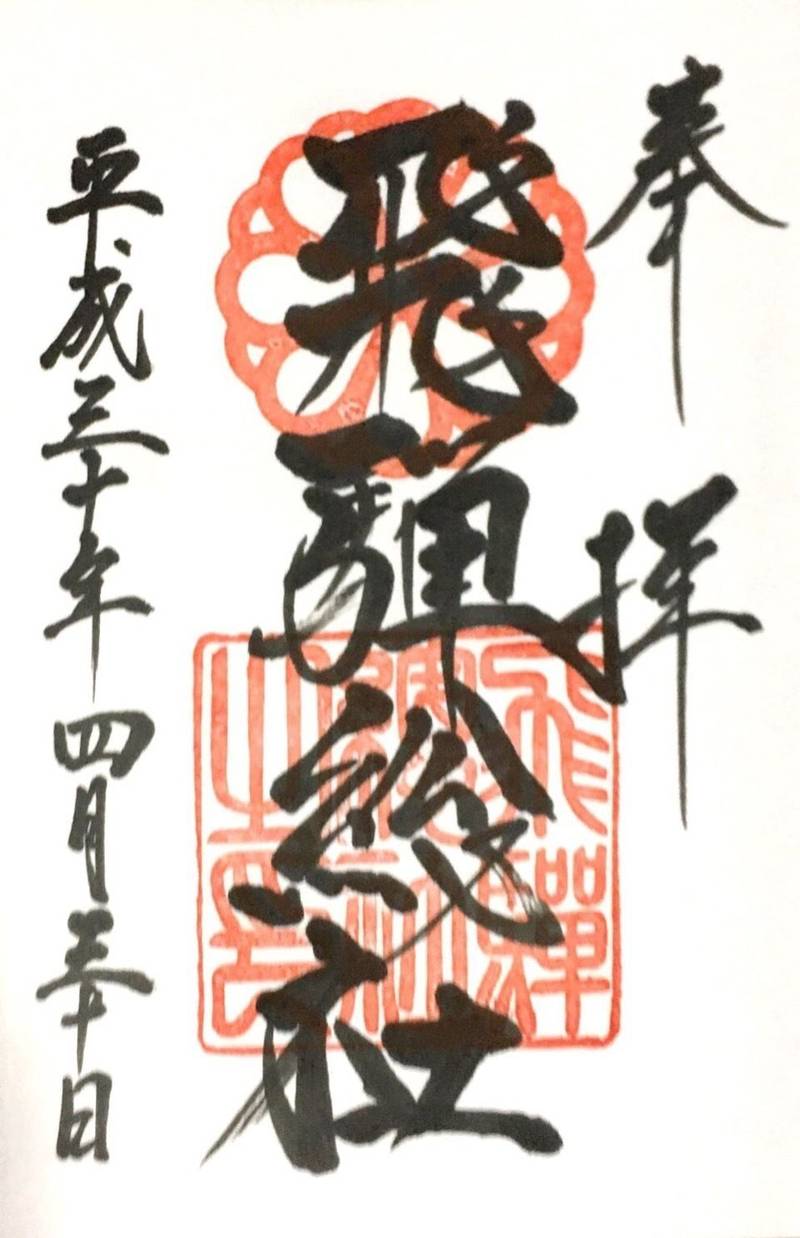 奉拝
飛驒総社
飛驒総社之印
平成三十年四月三十日